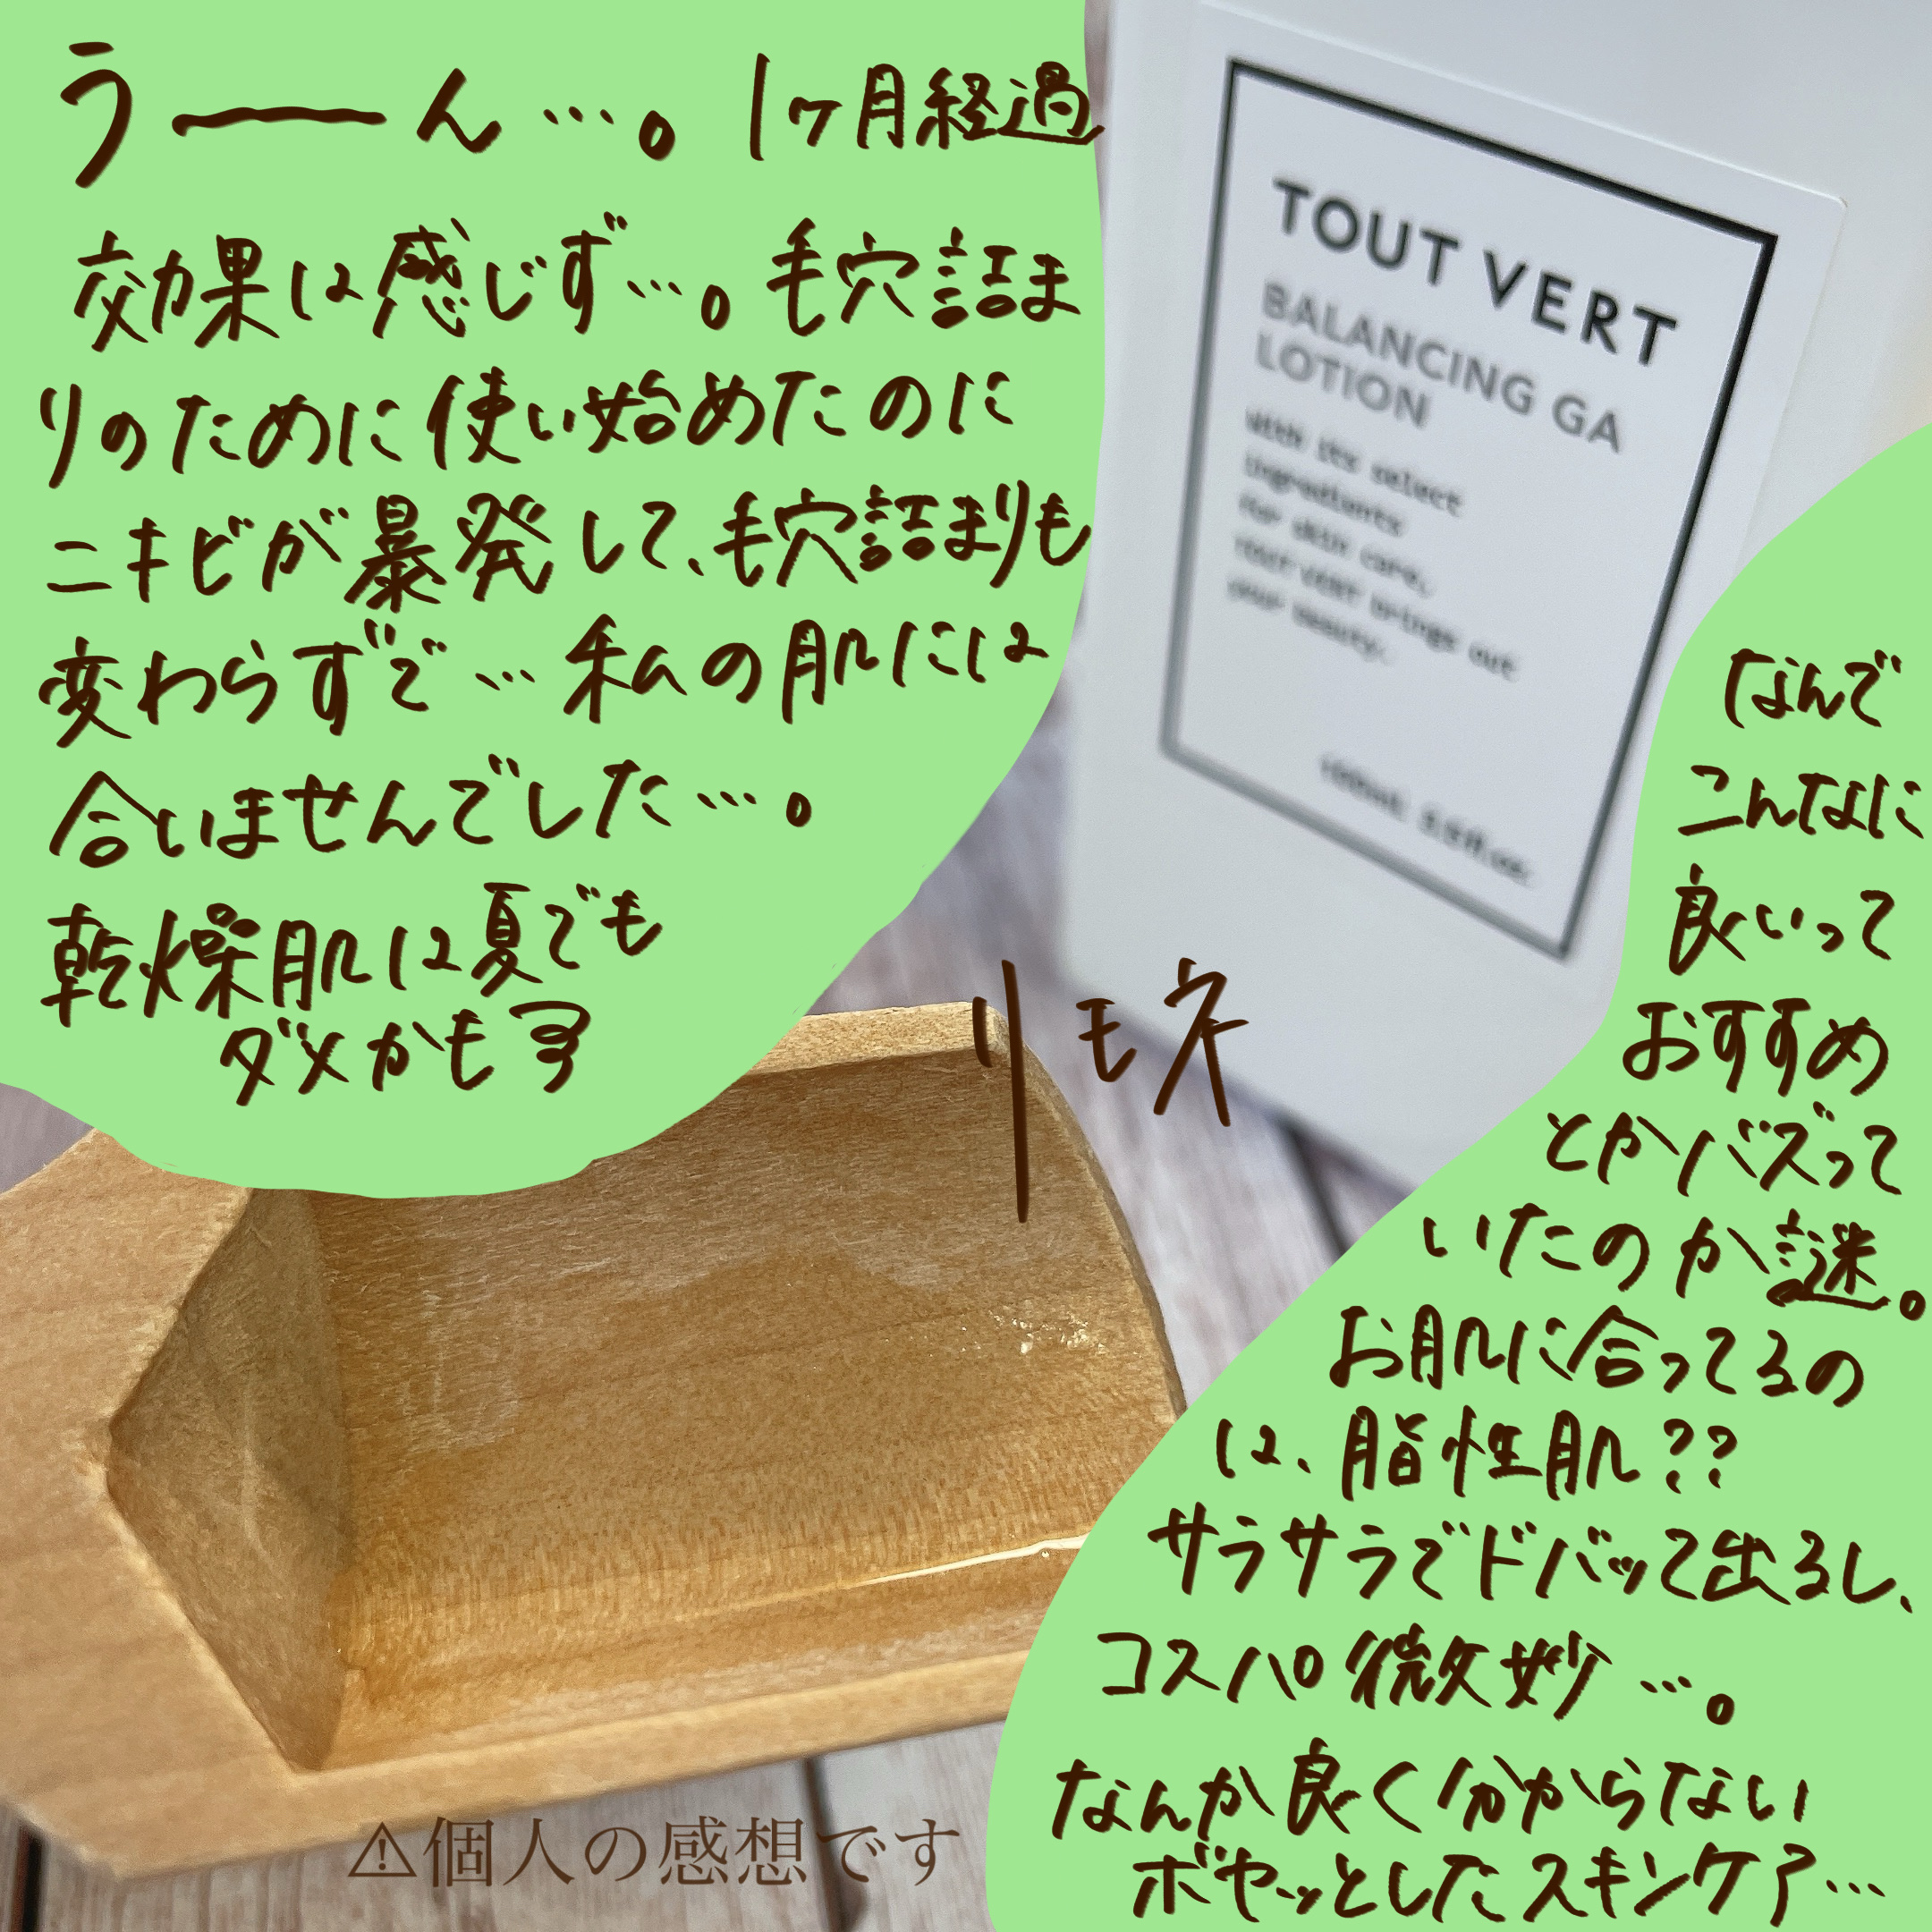 うーーん…。1ヶ月経過
効果は感じず…。毛穴詰ま
りのために使い始めたのに
ニキビが暴発して、毛穴詰まりも
変わらずで…私の肌には
合いませんでした…。
乾燥肌は夏でも
ダメかも
TOUT VERT
BALANCING GA
LOTION
With its select
ingredients
for skin care,
TOUT VERT brings out
your beauty.
リモネ
なんで
こんなに
良いって
おすすめ
とかバズって
いたのか謎。
お肌に合ってるの
は、脂性肌??
サラサラでドバッって出るし、
コスパ微妙…。
なんか良く分からない
ボヤーッとしたスキンケア…
⚠個人の感想です